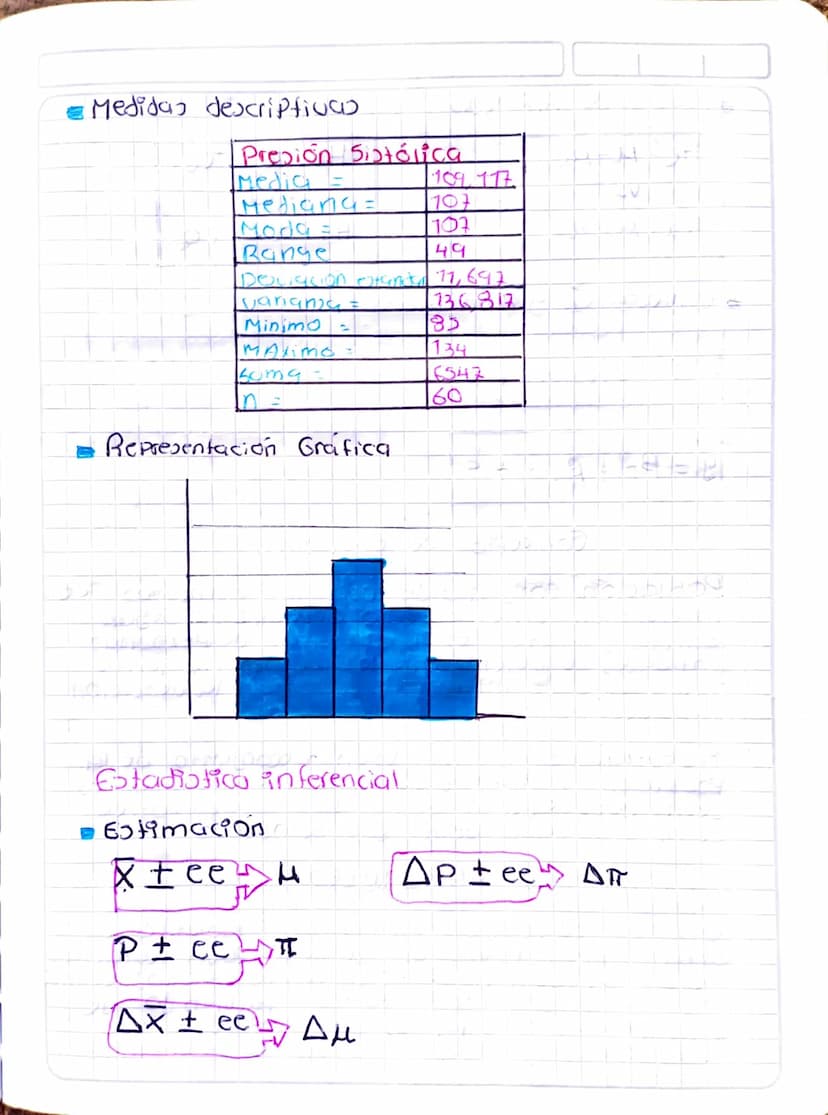 Medidas descriptivas
Presión Sistólica
Media = 109,117
Mediana = 107
Moda = 107
Range 49
Desviación estánta 11,697
Varianza = 136,817
Minimo = 85
MAximo = 134
Suma = 6547
n = 60
Representación Gráfica
Estadistica inferencial
Estimación
X̄ ± ee → μ
Δp ± ee → Δπ
P ± ee → π
Δx̄ ± ee → Δμ